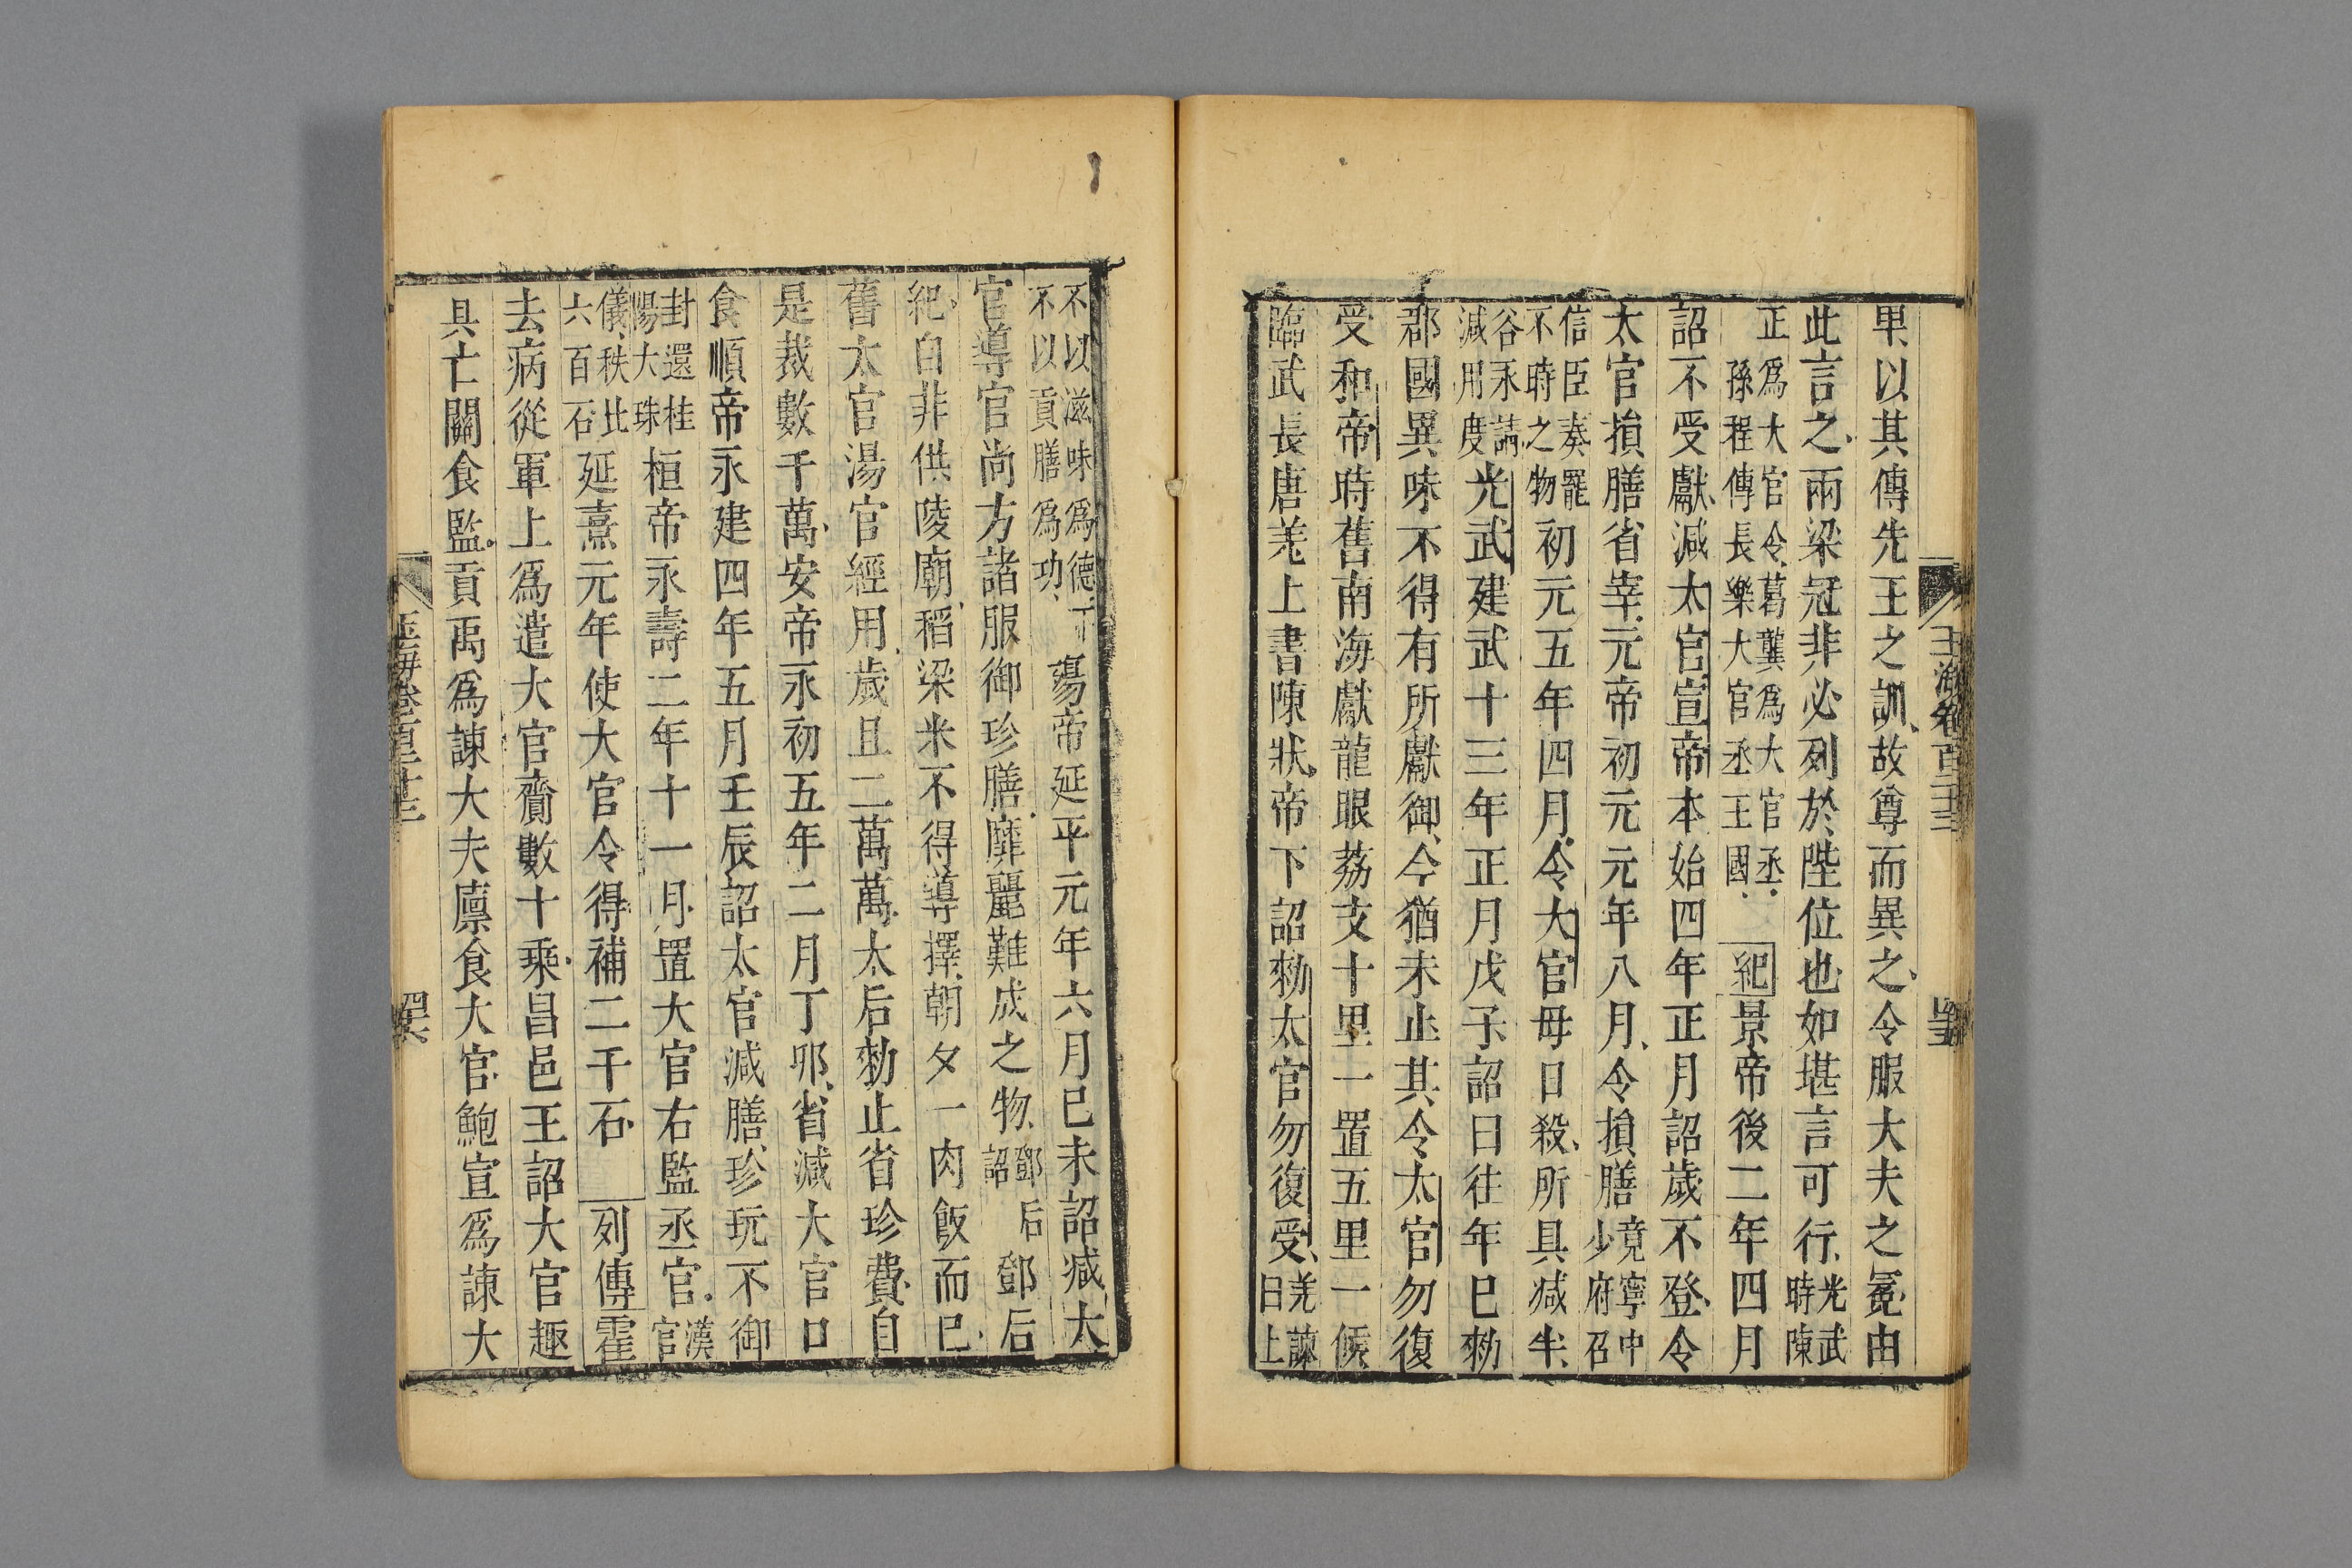 里以其傳先王之訓故尊而異之令服大夫之冕由
此言之兩梁冠非必列於陛位也如堪言可行光武時陳
正爲大官令葛龔爲大官丞孫程傳長樂大官丞王國紀景帝後二年四月
詔不受獻減太官宣帝本始四年正月詔歲不登令
太官損膳省宰元帝初元元年八月令損膳竟寧中少府召
信臣奏罷不時之物初元五年四月令大官毋日殺所具减半
谷永請減用度光武建武十三年正月戊子詔曰往年已勑
郡國異味不得有所獻御今猶未止其令太官勿復
受和帝時舊南海獻龍眼荔支十里一置五里一候
臨武長唐羌上書陳狀帝下詔勑太官勿復受羌諫曰上
不以滋味爲德下不以貢膳爲功殤帝延平元年六月已未詔减太
官導官尚方諸服御珍膳靡麗難成之物鄧后詔鄧后
紀自非供陵廟稻梁米不得導擇朝夕一肉飯而已
舊太官湯官經用歲且二萬萬太后勑止省珍費自
是裁數千萬安帝永初五年二月丁卯省減大官口
食順帝永建四年五月壬辰詔太官減膳珍玩不御
封還桂陽大珠桓帝永壽二年十一月置大官右監丞官漢官
儀秩比六百石延熹元年使大官令得補二千石列傳霍
去病從軍上爲遣大官齎數十乘昌邑王詔大官趣
具亡關食監貢禹爲諫大夫廩食大官鮑宣爲諫大
玉海卷百二十三